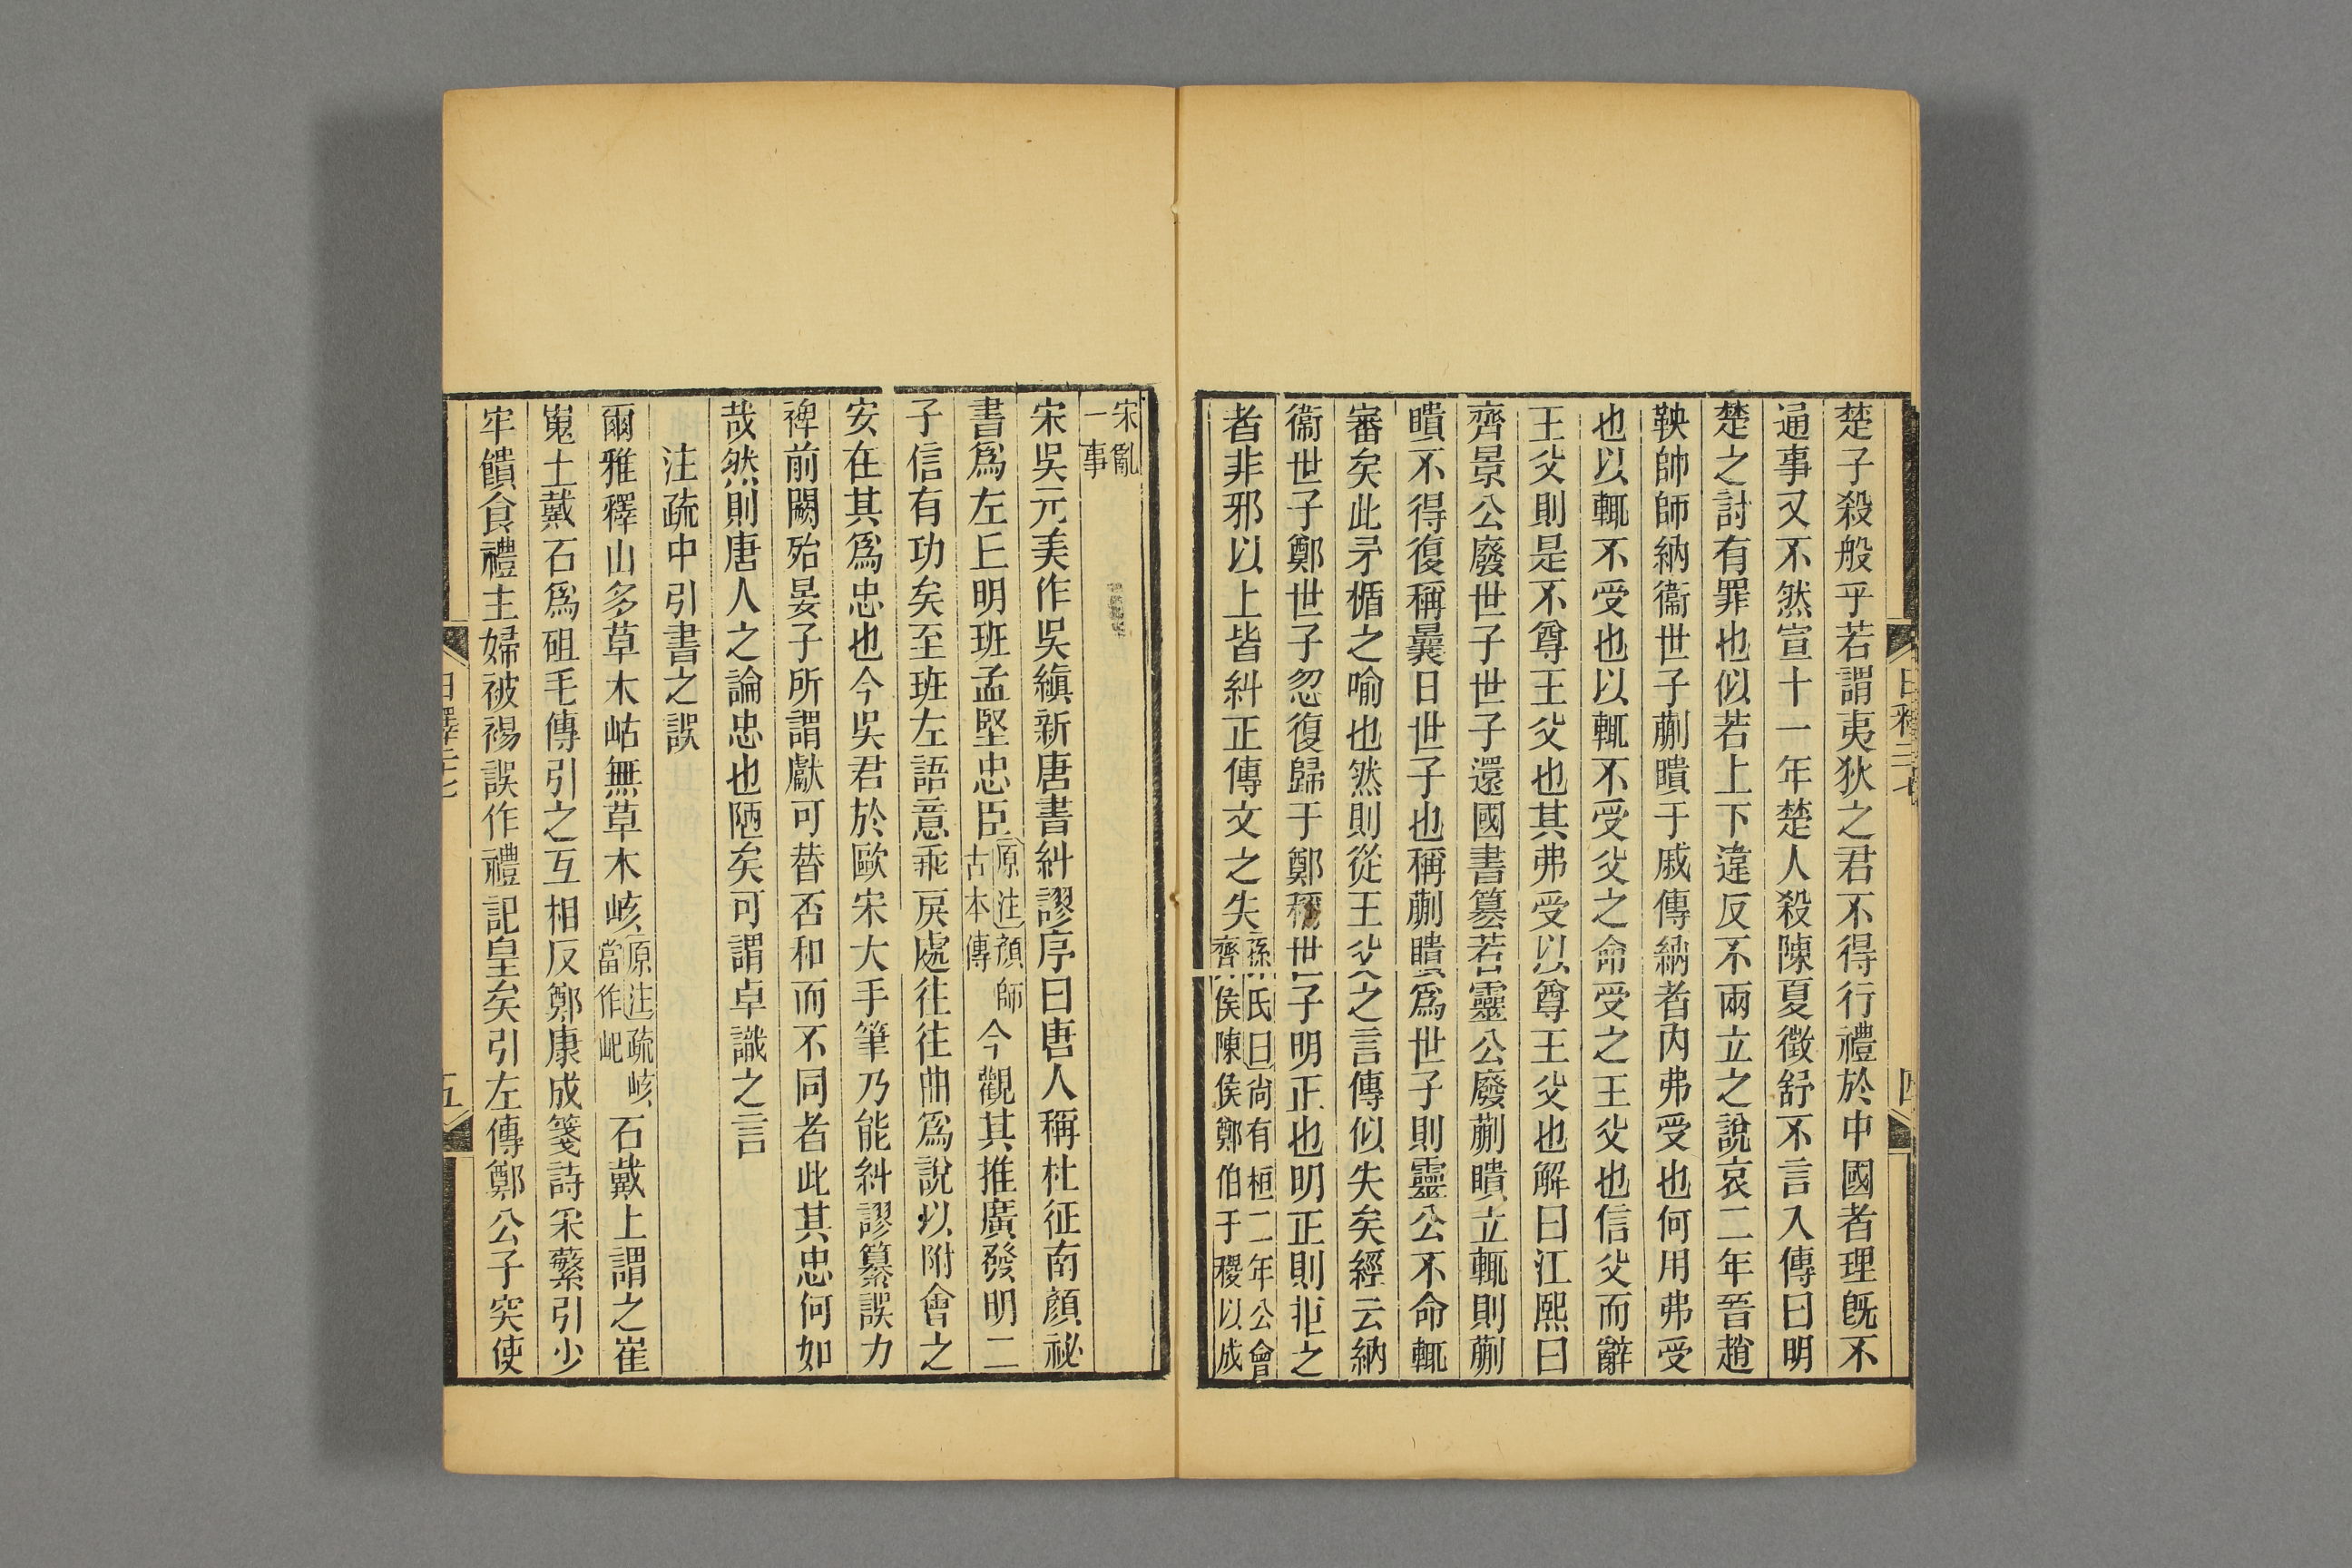 楚子殺般乎若謂夷狄之君不得行禮於中國者理旣不
通事又不然宣十一年楚人殺陳夏徵舒不言入傳曰明
楚之討有罪也似若上下違反不兩立之說哀二年晉趙
鞅帥師納衞世子蒯聵于戚傳納者內弗受也何用弗受
也以輒不受也以輒不受父之命受之王父也信父而辭
王父則是不尊王父也其弗受以尊王父也解曰江熙曰
齊景公廢世子世子還國書簒若靈公廢蒯聵立輒則蒯
聵不得復稱曩日世子也稱蒯聵爲世子則靈公不命輒
審矣此矛楯之喻也然則從王父之言傳似失矣經云納
衞世子鄭世子忽復歸于鄭稱世子明正也明正則拒之
者非邪以上皆糾正傳文之失
孫氏曰尚有桓二年公會
齊侯陳侯鄭伯于稷以成
日釋二七
四
宋亂
一事
宋吳元美作吳縝新唐書糾謬序曰唐人稱杜征南顏祕
書爲左丘明班孟堅忠臣
原注顏師
古本傳
今觀其推廣發明二
子信有功矣至班左語意乖戾處往往曲爲說以附會之
安在其爲忠也今吳君於歐宋大手筆乃能糾謬纂誤力
裨前闕殆晏子所謂獻可替否和而不同者此其忠何如
哉然則唐人之論忠也陋矣可謂卓識之言
注疏中引書之誤
爾雅釋山多草木岵無草木峐
原注疏峐
當作屺
石戴上謂之崔
嵬土戴石爲砠毛傳引之互相反鄭康成箋詩采蘩引少
牢饋食禮主婦被裼誤作禮記皇矣引左傳鄭公子突使
日釋二七
五